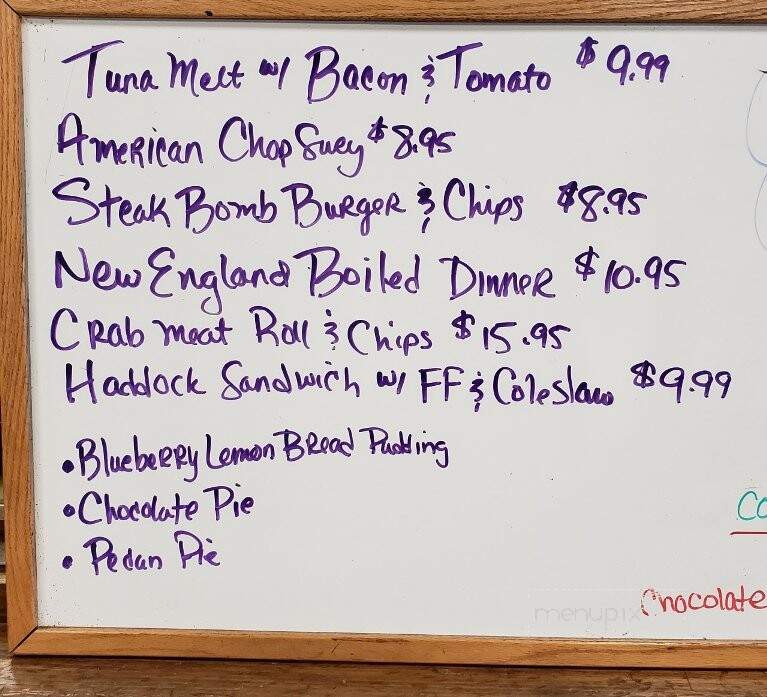 Tuna Melt w/ Bacon & Tomato $9.99
American Chop Suey $8.95
Steak Bomb Burger & Chips $8.95
New England Boiled Dinner $10.95
Crab meat Roll & Chips $15.95
Haddock Sandwich w/ FF & Coleslaw $9.99
• Blueberry Lemon Bread Pudding
• Chocolate Pie
• Pecan Pie
Co
Chocolate
menupix